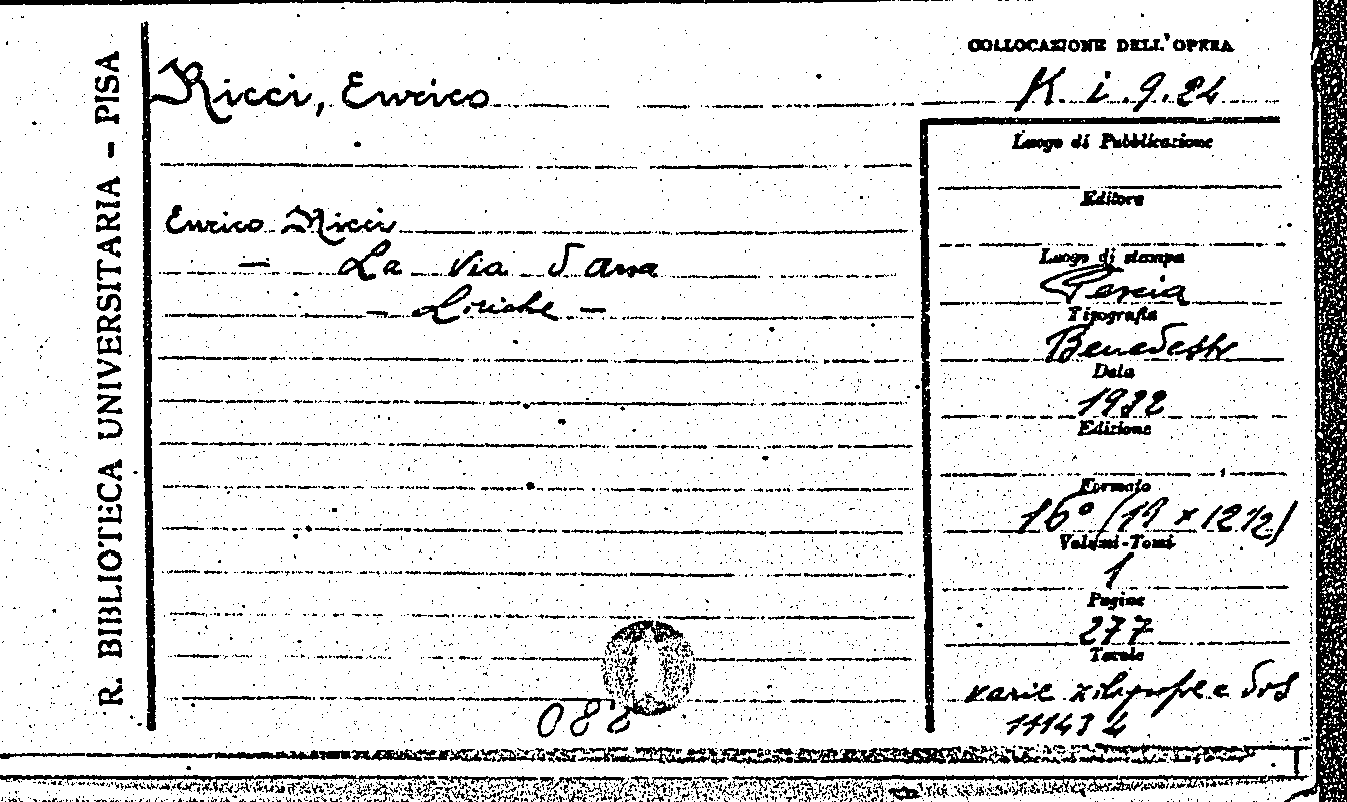 R. BIBLIOTECA UNIVERSITARIA - PISA
Ricci, Enrico
COLLOCAZIONE DELL'OPERA
K. i. 9. 24
Enrico Ricci
— La Via d'
— Liriche —
Luogo di Pubblicazione
Editore
Luogo di stampa
Pescia
Tipografia
Benedetti
Data
1932
Edizione
Formato
16° (19 x 12 1/2)
Volumi-Tomi
1
Pagine
277
Tavole
varie
088